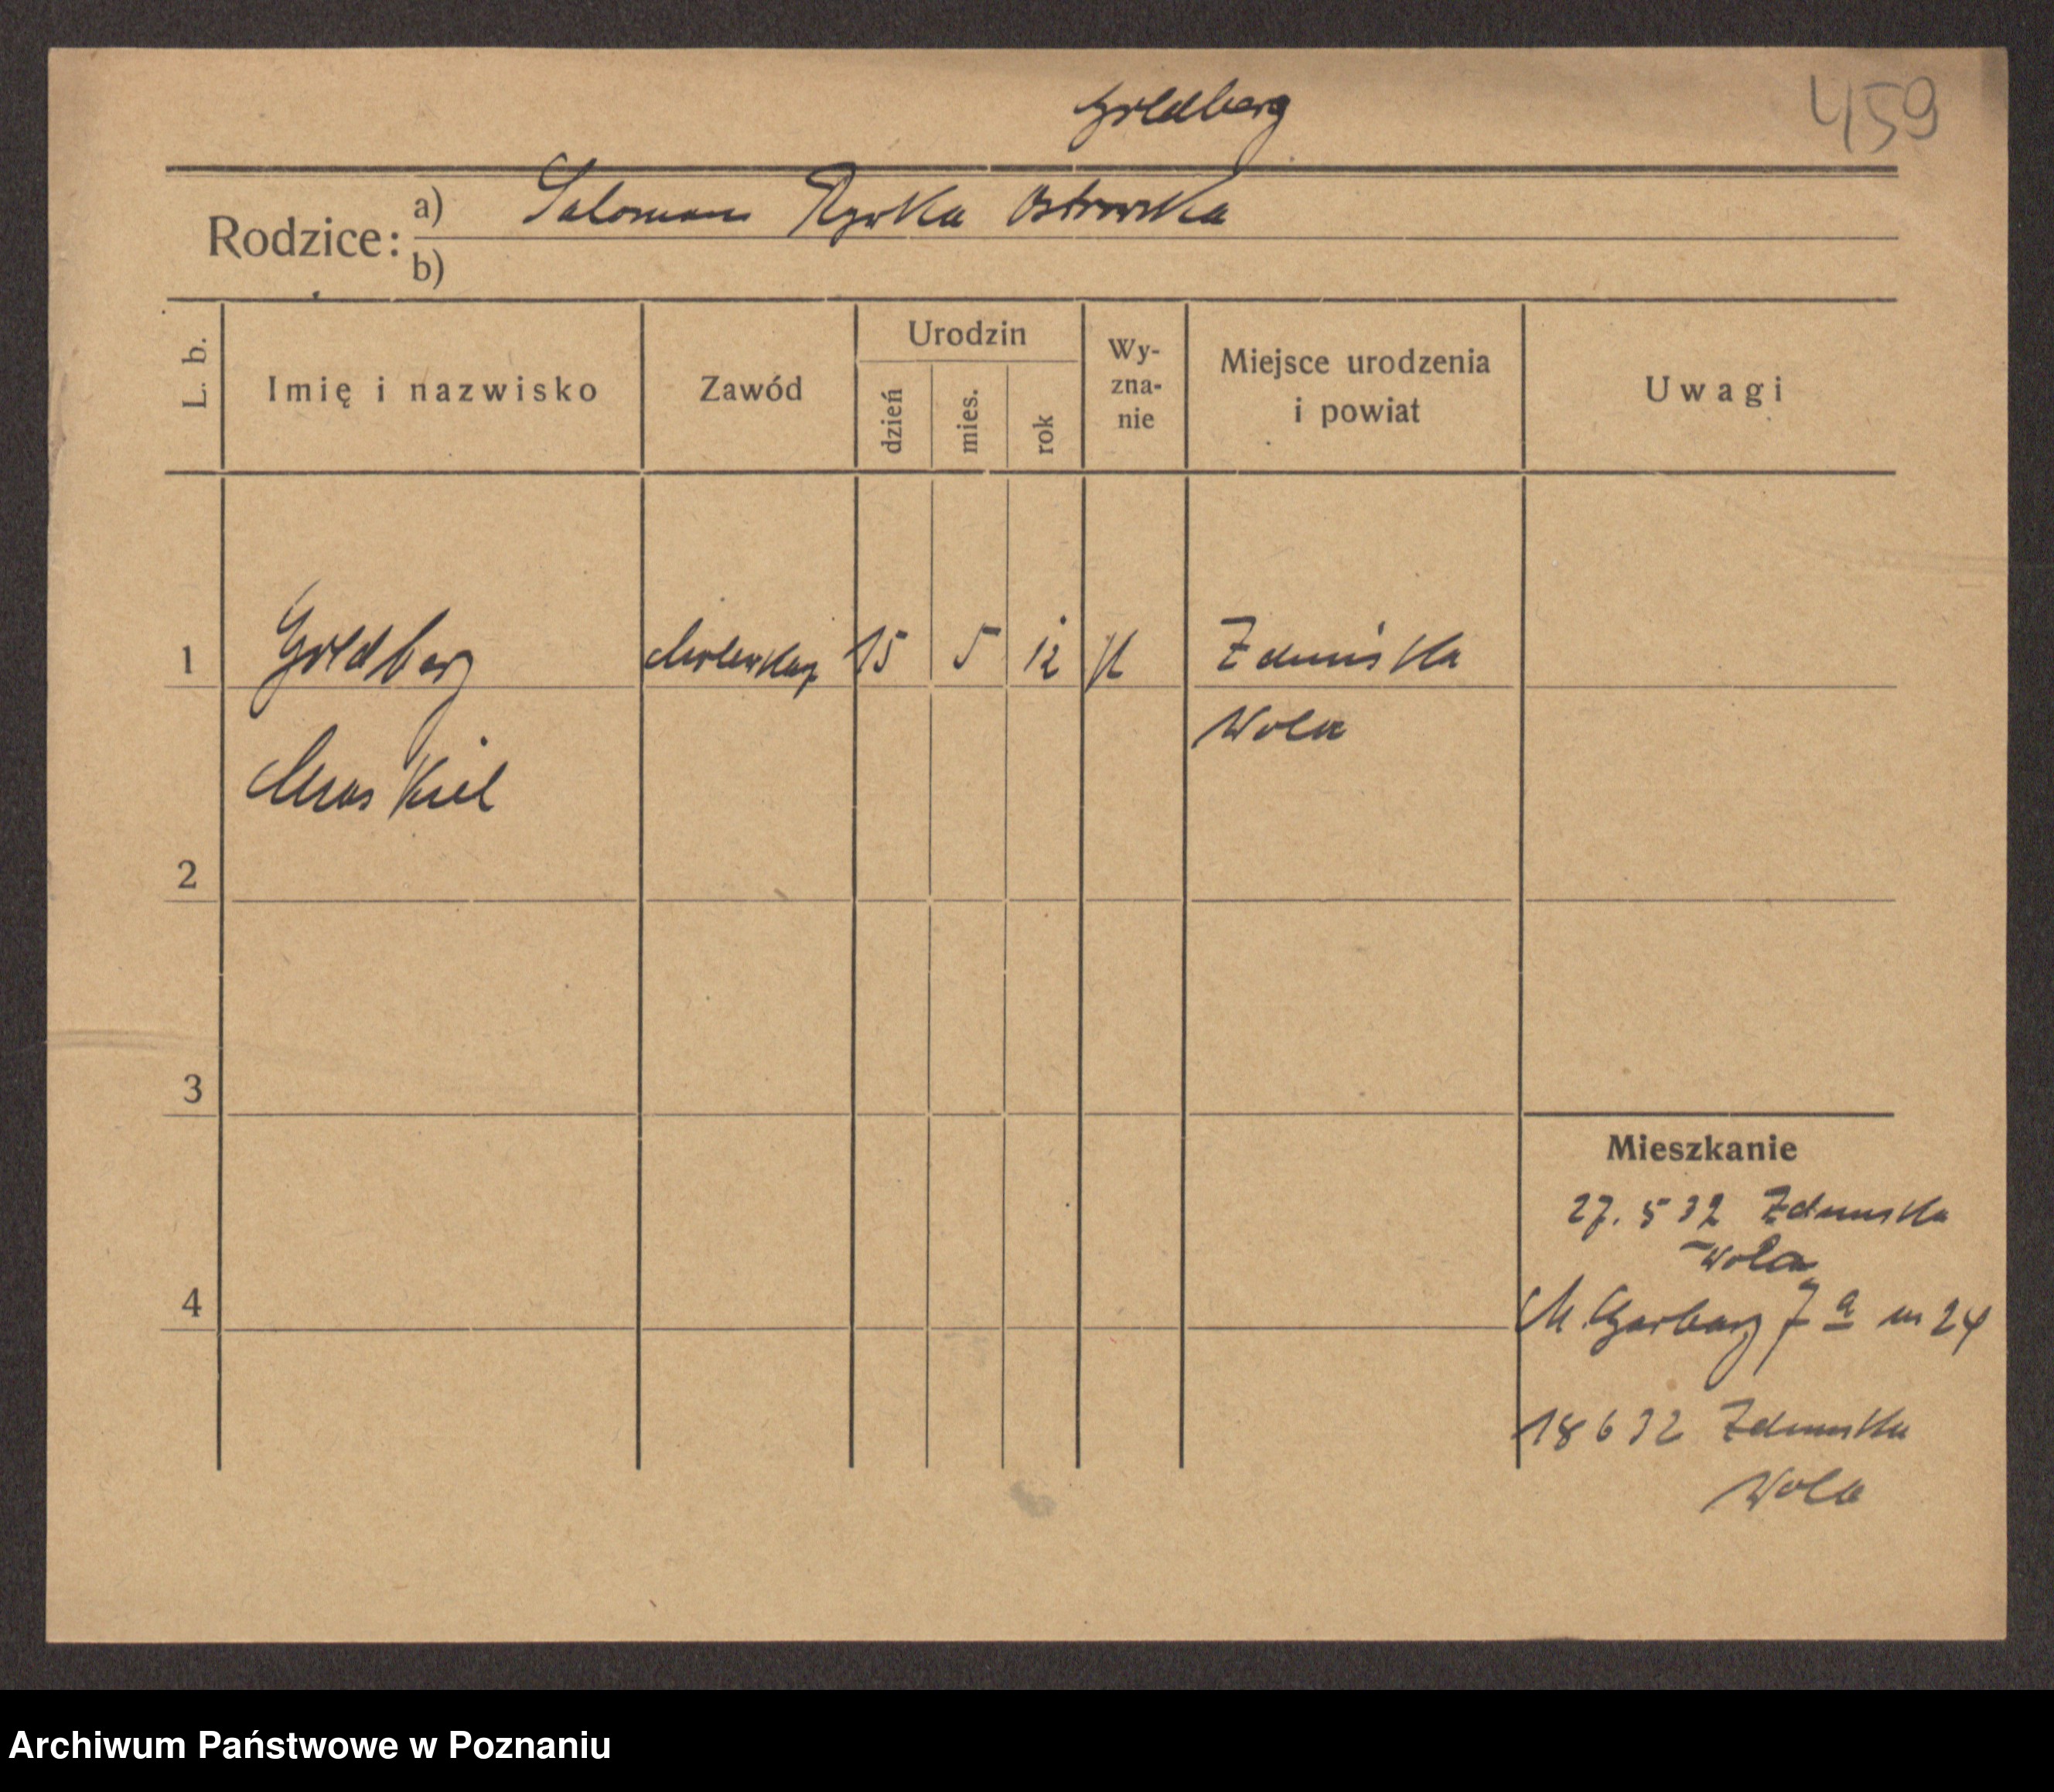 Goldberg
459
Rodzice:
a) Salomon Rywka Ostrowska
b)
L. b.
Imię i nazwisko
Zawód
Urodzin
dzień
mies.
rok
Wy-
zna-
nie
Miejsce urodzenia
i powiat
Uwagi
1 Goldberg cholewkarz 15 5 12 Zduńska
Wola
2
3
Mieszkanie
27. 5 32 Zduńska
Wola
4
M. Garbary 7 a m 24
18 6 32 Zduńska
Wola
Archiwum Państwowe w Poznaniu